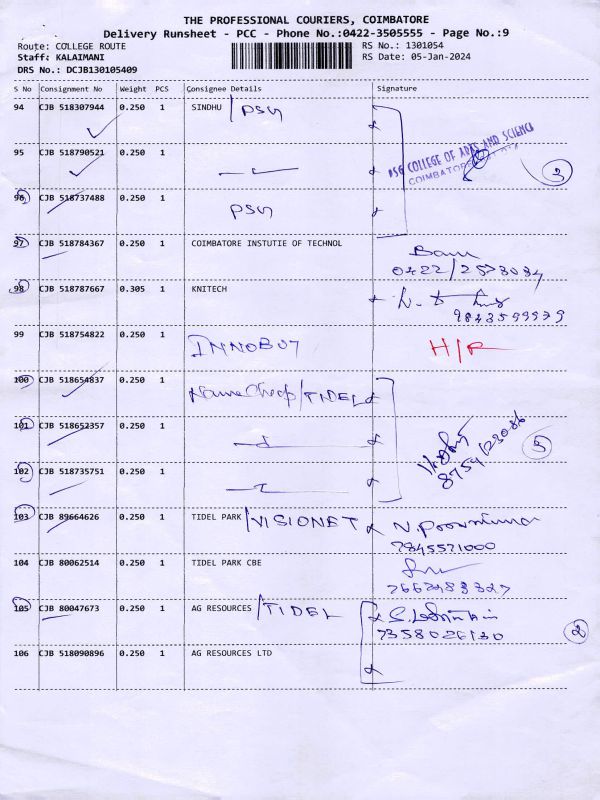 THE PROFESSIONAL COURIERS, COIMBATORE
Delivery Runsheet - PCC - Phone No.:0422-3505555 - Page No.:9
Route: COLLEGE ROUTE RS No.: 1301054
Staff: KALAIMANI RS Date: 05-Jan-2024
DRS No.: DCJB130105409
S No Consignment No Weight PCS Consignee Details Signature
94 CJB 518307944 0.250 1 SINDHU / PSG
95 CJB 518790521 0.250 1
PSG COLLEGE OF ARTS AND SCIENCE
COIMBATORE
3
96 CJB 518737488 0.250 1 PSG
97 CJB 518784367 0.250 1 COIMBATORE INSTUTIE OF TECHNOL
0422/2573034
98 CJB 518787667 0.305 1 KNITECH
9843599979
99 CJB 518754822 0.250 1 INNOBOT H/R
100 CJB 518654837 0.250 1 NameCheap/TIDEL
101 CJB 518652357 0.250 1
8754123086
3
102 CJB 518735751 0.250 1
103 CJB 89664626 0.250 1 TIDEL PARK / VISIONET
7845571000
104 CJB 80062514 0.250 1 TIDEL PARK CBE
105 CJB 80047673 0.250 1 AG RESOURCES / TIDEL
7358026130
2
106 CJB 518090896 0.250 1 AG RESOURCES LTD